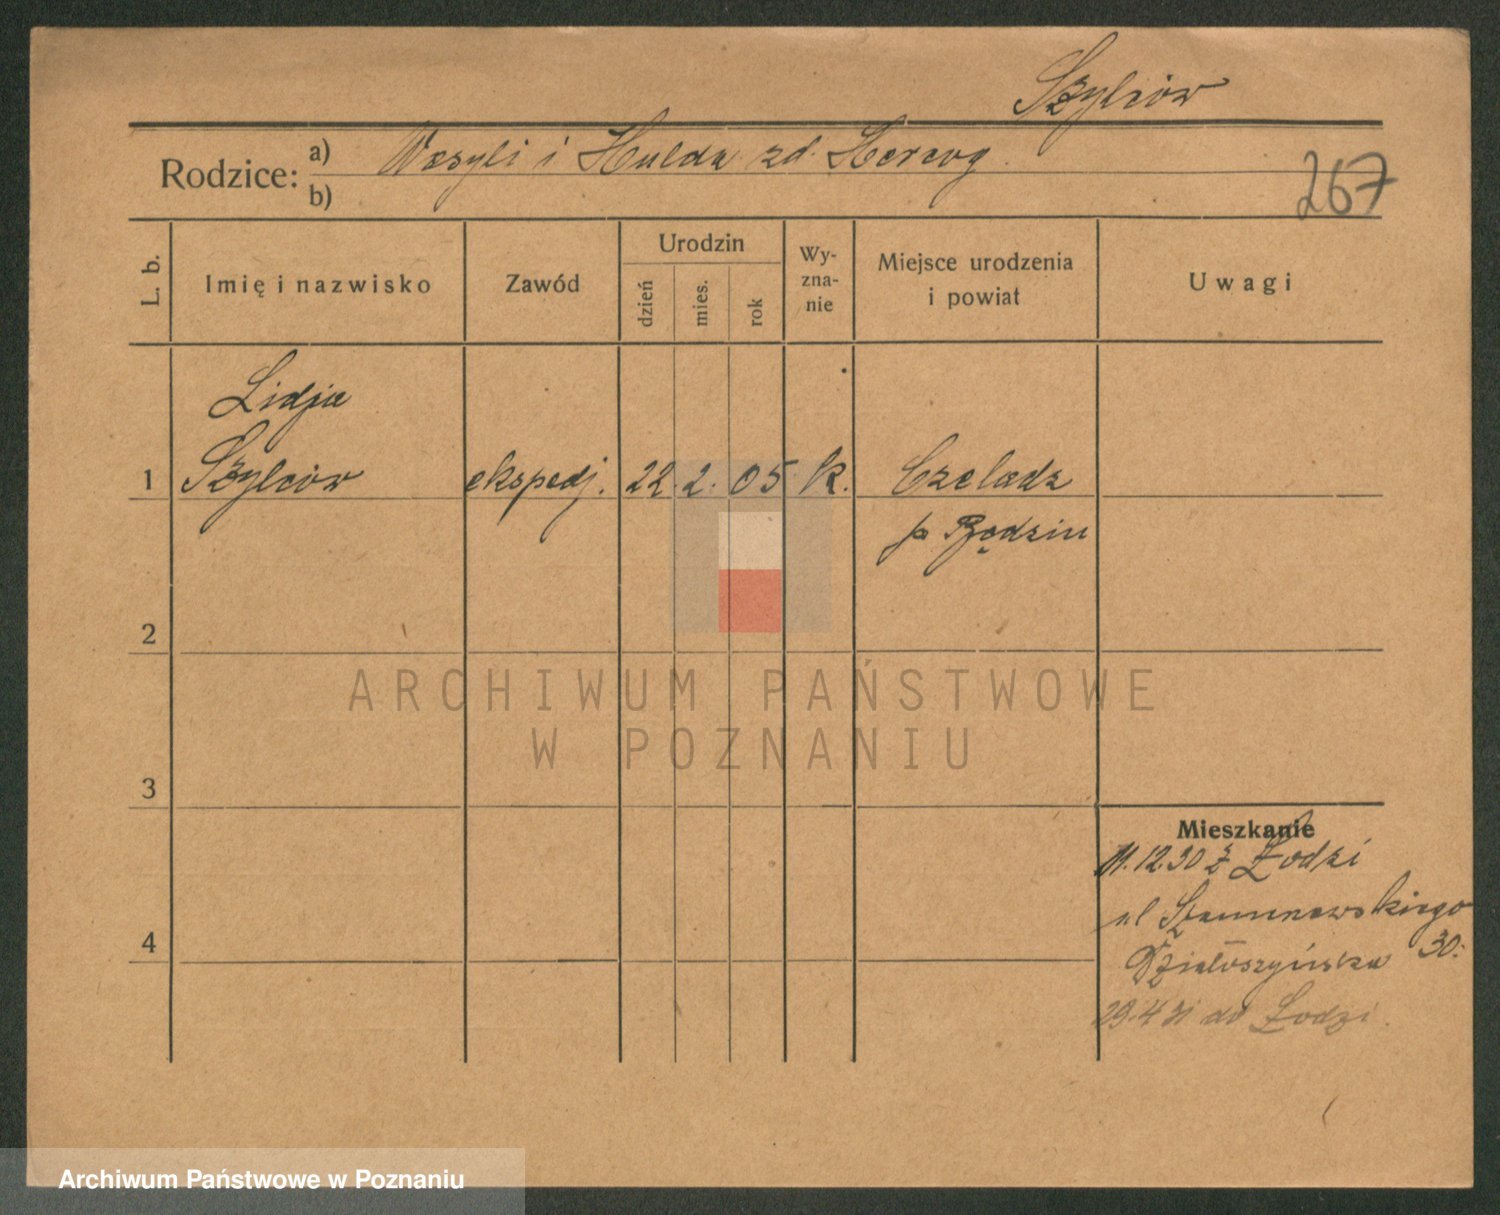 Szylców
Rodzice: a) Wasyli i Hulda zd. Hercog.
b)
267
L. b.
Imię i nazwisko
Zawód
Urodzin
dzień
mies.
rok
Wy-
zna-
nie
Miejsce urodzenia
i powiat
Uwagi
Lidja
1 Szylców ekspedj. 22. 2. 05 k. Czeladz
p Będzin
2
3
4
ARCHIWUM PAŃSTWOWE
W POZNANIU
Mieszkanie
11.12.30 z Łodzi
ul
30.
Działoszyńska
29.4 31 do Łodzi.
Archiwum Państwowe w Poznaniu